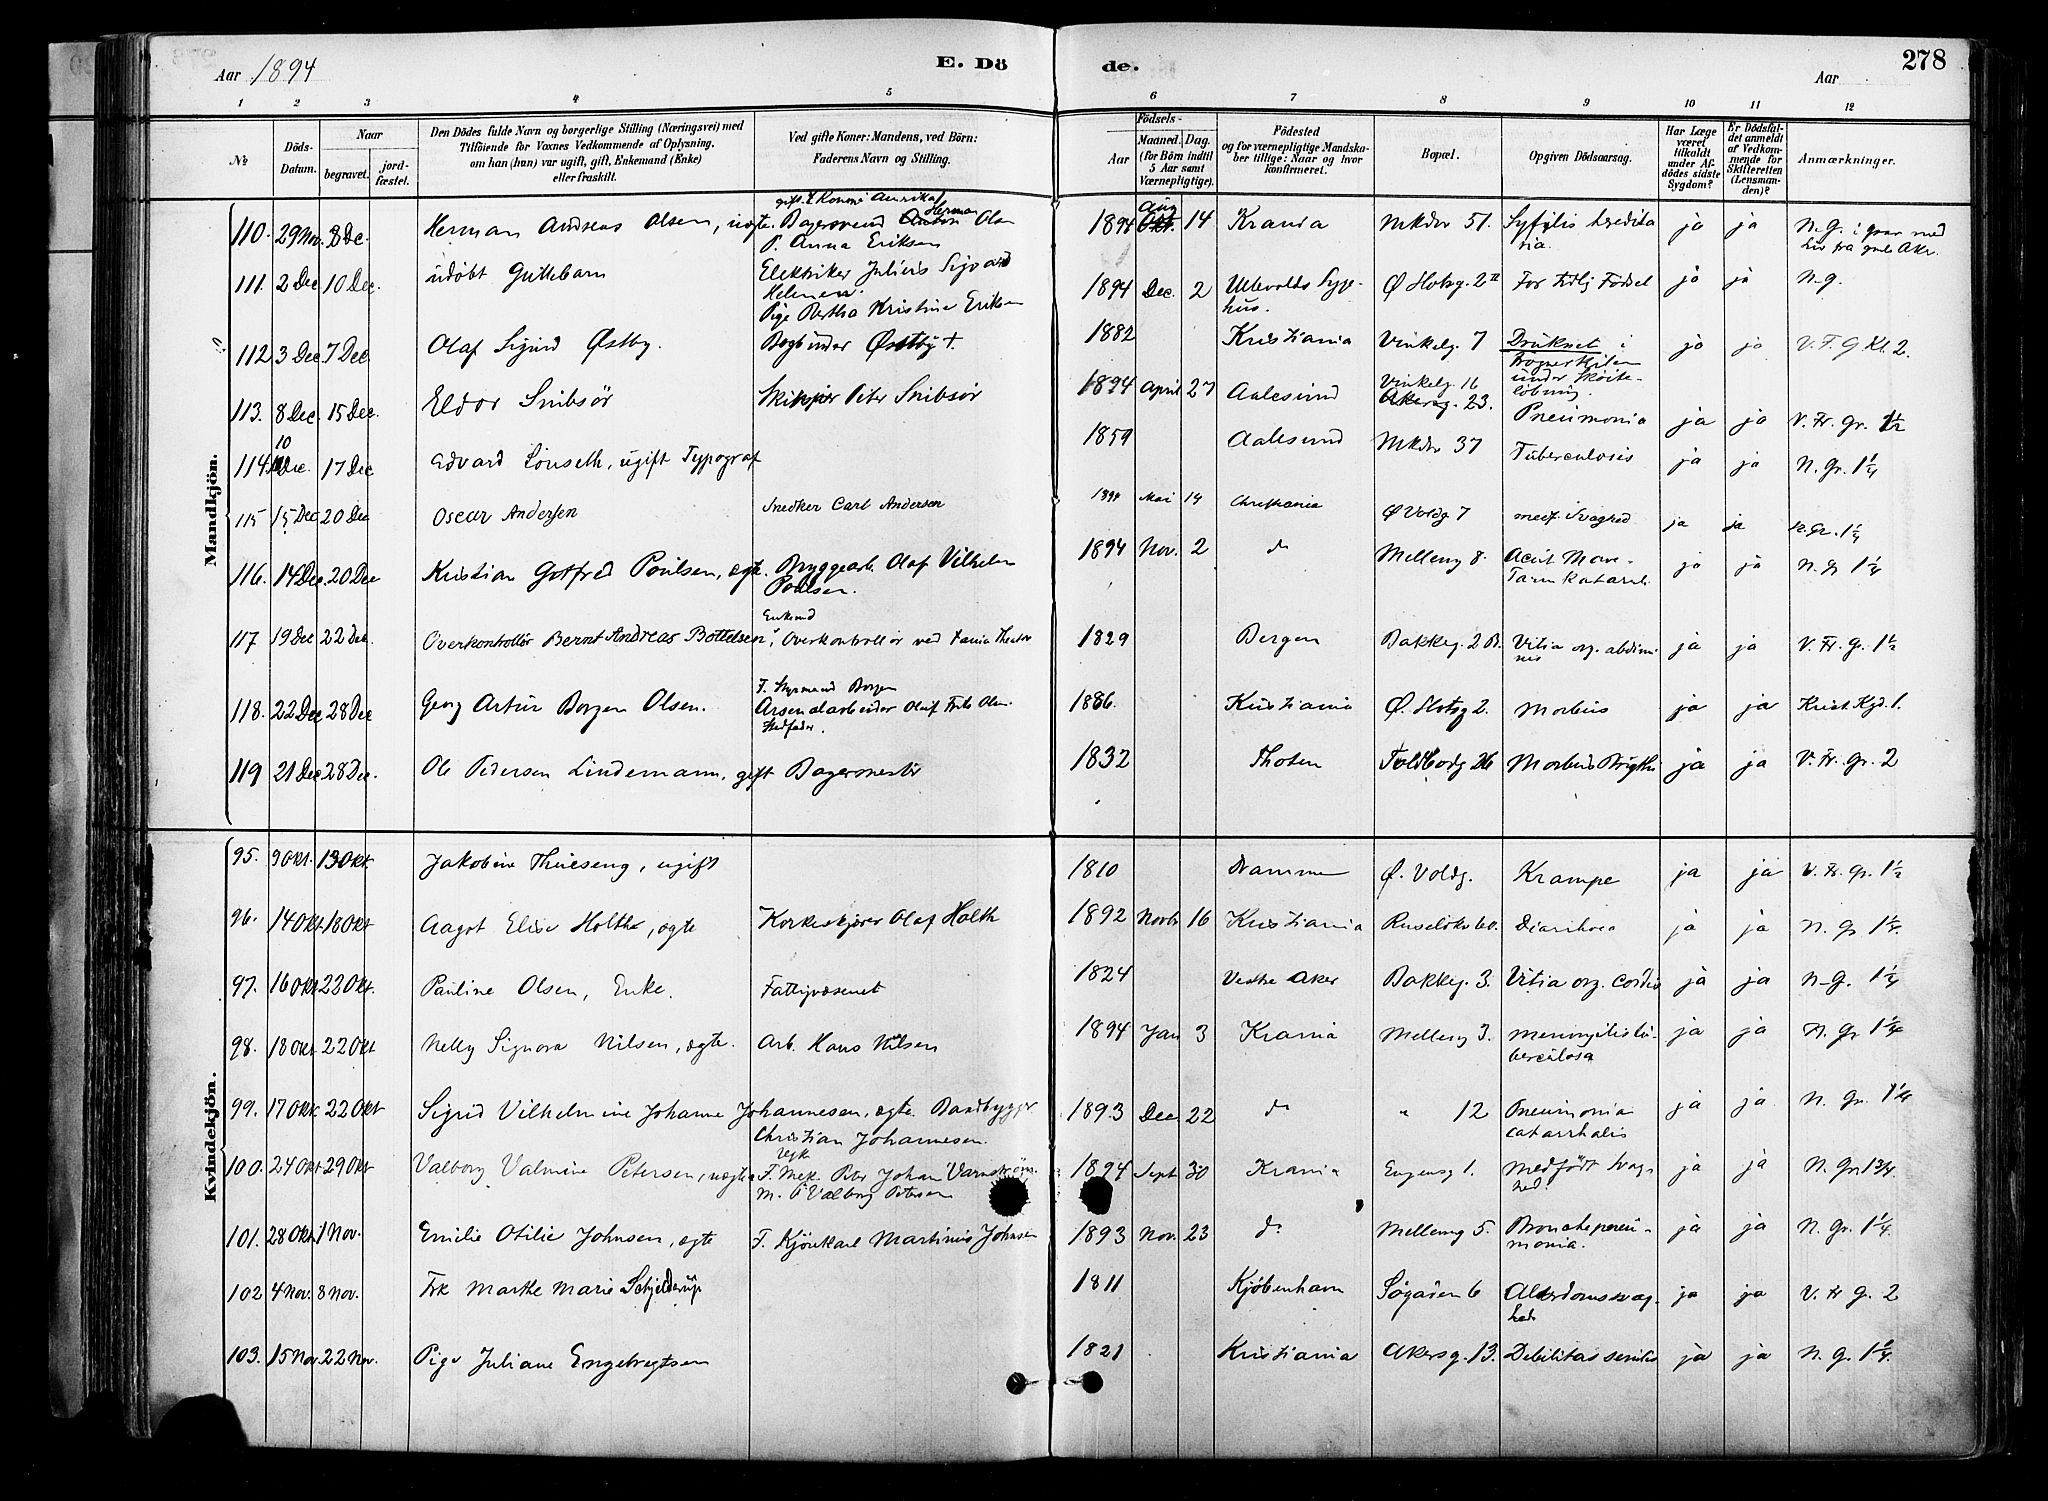 Aar 1894
E. Dö
de.
Aar
278
1 2 3 4 5 6 7 8 9 10 11 12
No
Döds-Datum.
Naar
begravet.
jord-fæstet.
Den Dödes fulde Navn og borgerlige Stilling (Næringsvei) med
Tilföiende for Voxnes Vedkommende af Oplysning.
om han (hun) var ugift, gift, Enkemand (Enke)
eller fraskilt.
Ved gifte Koner: Mandens, ved Börn:
Faderens Navn og Stilling.
Födsels-
Aar
Maaned. Dag.
(for Börn indtil
5 Aar samt
Værnepligtige).
Födested
og for værnepligtige Mandska-
ber tillige: Naar og hvor
konfirmeret.
Bopæl.
Opgiven Dödsaarsag.
Har Læge
været
tilkaldt
under Af-
dödes sidste
Sygdom?
Er Dödsfal-
det anmeldt
af Vedkom-
mende for
Skifteretten
(Lensman-
den)?
Anmærkninger.
Mandkjön.
110. 29 Nov. 8 Dec. Herman Andreas Olsen, uægte. Bagersvend Herman Olsen 1894 Aug 14 Krania Mkdv 51. Syfilis heredita ja ja N.G. i grav med
P. Anna Eriksen ria.
111. 2 Dec 10 Dec. udøbt Guttebarn Elektriker Julius Sigvard 1894 Dec. 2 Ullevolds Syge- Ø Slotsg. 2 II For tidlig Födsel ja ja N.G.
Helmer. hus.
Pige Bertha Kristine Eriksen
112 3 Dec 7 Dec Olaf Sigurd Østby. Bogbinder Østby +. 1882 Kristiania Vinkelg. 7 Druknet i ja ja V. F. G Kl. 2.
under Skøite-
løbning.
113. 8 Dec. 15 Dec. Eldor Snibsör Skipper Peter Snibsör 1894 April 27 Aalesund Vinkelg. 16 Pneumonia ja ja V. Fr. Gr. 1½
Akersg. 23.
114. 10 Dec. 17 Dec Edvard Lönseth, ugift Typograf 1859 Aalesund Mkdv 37 Tuberculosis ja ja N. Gr. 1¼
115 15 Dec 20 Dec Oscar Andersen Snedker Carl Andersen 1894 Mai 14 Christiania Ø Voldg 7 medf. Svaghed ja ja N. Gr. 1¼
116. 14 Dec. 20 Dec Kristian Gotfred Poulsen, ægte. Bryggearb. Olaf Vilhelm 1894 Nov. 2 do Mellemg 8. Acut Mave- ja ja N. Gr 1¼
Poulsen. Tarmkatarrh.
117. 19 Dec 22 Dec. Overkontrollör Bernt Andreas Bottelsen, Enkemd Overkontrollör ved Tania Theater 1829 Bergen Bakkeg. 2 B. Vitia org. abdomi- ja ja V. Fr. Gr. 1½
nis
118. 22 Dec 28 Dec Georg Artur Borgen Olsen. F. Styrmand Borgen 1886. Kristiania Ø. Slotsg 2. Morbus ja ja Krist Kgd. 1.
Arsenalarbeider Olaf Fritz Olsen
Stedfader.
119 21 Dec 28 Dec. Ole Pedersen Lindemann, gift Bagermester 1832 Thoten Toldbodg 26 Morbus Brigthi ja ja V. Fr. Gr. 2
Kvindekjön.
95. 9 Okt. 13 Okt. Jakobine Thueseng, ugift 1810 Drammen Ø. Voldg. Krampe ja ja V. Fr. Gr. 1½
96. 14 Okt. 18 Okt Aagot Elise Holthe, ægte Korkeskjærer Olaf Holth 1892 Novbr 16 Kristiania Ruselökv 60. Diarrhoea ja ja N. Gr 1¼.
97. 16 Okt. 23 Okt. Pauline Olsen, Enke. Fattigvæsenet 1824 Vestre Aker Bakkeg. 3. Vitia org. cordis ja ja N.G. 1¼
98. 18 Okt. 22 Okt Nelly Signora Nilsen, ægte. Arb. Hans Nilsen 1894 Jan 3 Krania Mellemg 3. meningitis tu- ja ja N. Gr 1¼
berculosa
99. 17 Okt. 22 Okt Sigrid Vilhelmine Johanne Johannesen, ægte. Baadbygger 1893 Dec. 22 do " 12 Pneumonia ja ja. N. Gr. 1¼
Christian Johannesen. catarrhalis
100. 24 Okt 29 Okt Valborg Valmine Petersen, uægte F. Mek. Peter Johan Varnström. 1894 Sept 30 Krania Eugensg 1. Medfödt Svag- ja ja N. Gr. 1¾.
M. P Valborg Petersen hed.
101. 28 Okt. 1 Nov. Emilie Otilie Johnsen, ægte F. Kjörekarl Martinius Johnsen 1893 Nov. 23 do Mellemg 5. Bronchepneu- ja ja N. Gr. 1¼
monia.
102 4 Nov. 8 Nov. Frk Marthe Marie Schjelderup 1811 Kjöbenhavn Søgaden 6 Alderdomssvag- ja ja V. Fr G. 2
hed
103. 15 Nov. 22 Nov. Pige Juliane Engebregtsen 1821 Kristiania Akersg. 13. Debilitas senilis ja ja N. G. 1¼.